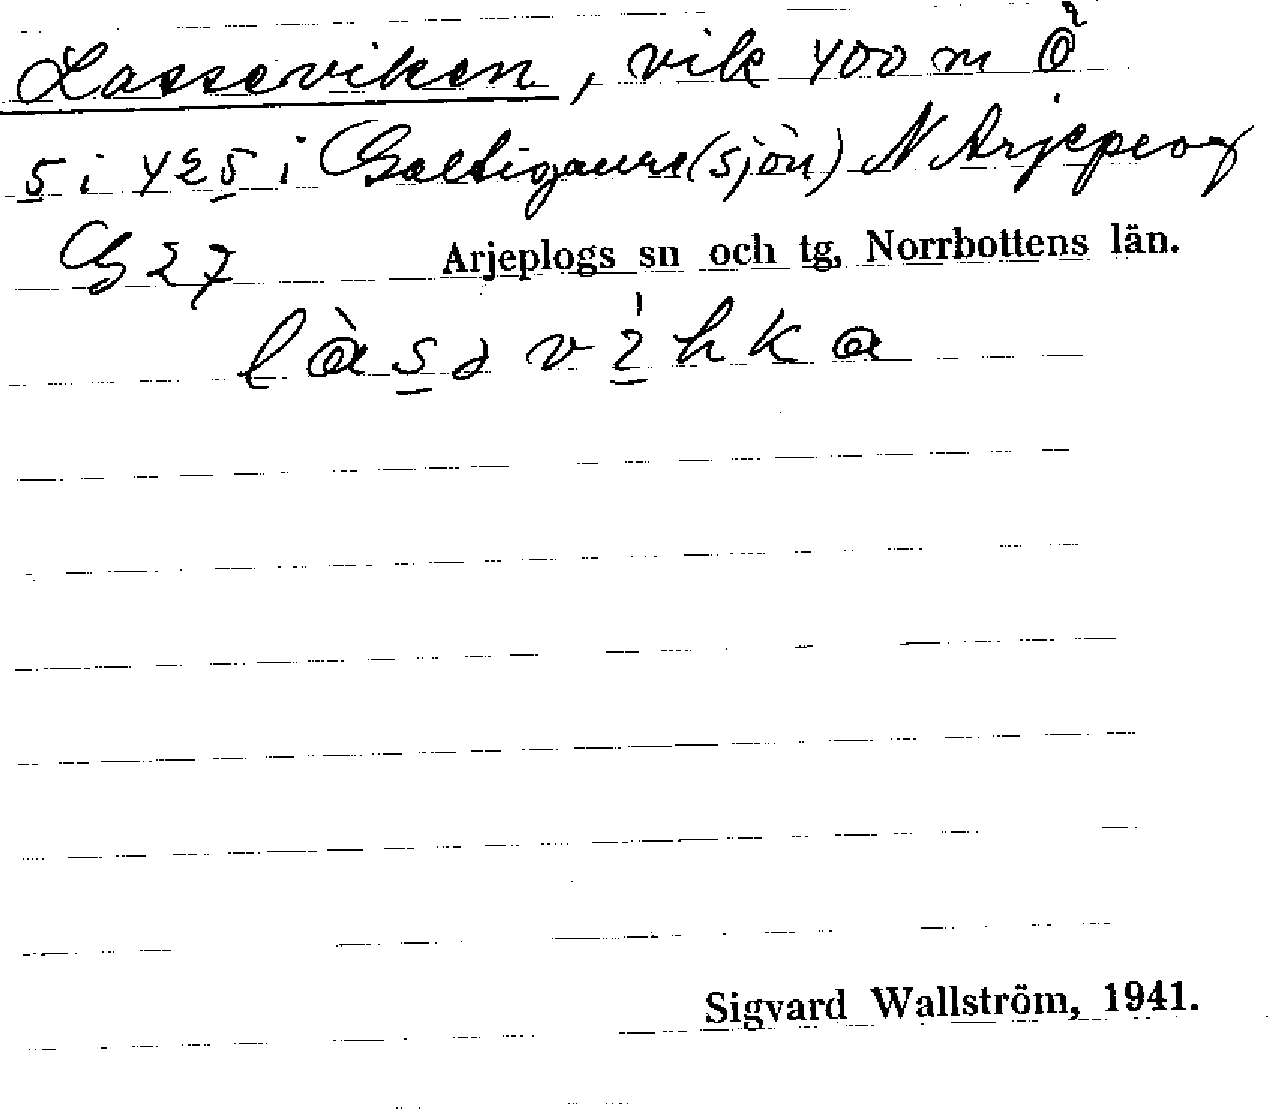 Lasseviken, vik 400 m Ö
5 i 425 i Galtigaure (sjön) N Arjeplog
G 27 Arjeplogs sn och tg, Norrbottens län.
làsəvìhka
Sigvard Wallström, 1941.